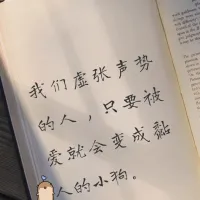 我们虚张声势
的人，只要被
爱就会变成黏
人的小狗。